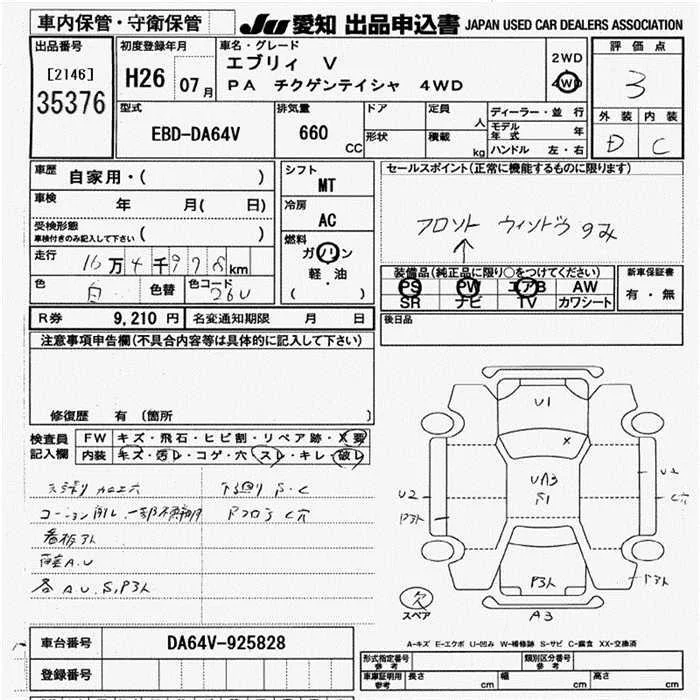 車内保管・守衛保管
JU 愛知 出品申込書 JAPAN USED CAR DEALERS ASSOCIATION
出品番号
[2146]
35376
初度登録年月
H26 07月
車名・グレード
エブリィ V
PA チクゲンテイシャ 4WD
2WD
4WD
評価点
3
外装 内装
D C
型式
EBD-DA64V
排気量
660 CC
ドア
形状
定員 人
積載 kg
ディーラー・並行
モデル年式 年
ハンドル 左・右
車歴 自家用・( )
車検 年 月( 日)
受検形態
車検付きのみ記入して下さい ( )
走行 16万4千978km
色 白 色替 色コード 26U
シフト
MT
冷房
AC
燃料
ガソリン
軽・油
( )
セールスポイント(正常に機能するものに限ります)
フロント ウィンドウ のみ
装備品(純正品に限り○をつけてください)
PS PW エアB AW
SR ナビ TV カワシート
新車保証書
有・無
R券 9,210 円 名変通知期限 月 日
後日品
注意事項申告欄(不具合内容等は具体的に記入して下さい)
修復歴 有(箇所 )
検査員
記入欄
FW キズ・飛石・ヒビ割・リペア跡・X要
内装 キズ・汚レ・コゲ・穴・スレ・キレ・破レ
下廻り S・C
コーション
看板アト
各A.U.S,P3ト
U1
X
UA3
S1
U2
P3ト
U2
C穴
P3ト
P3ト
A3
欠
スペア
A-キズ E-エクボ U-凹み W-補修跡 S-サビ C-腐食 XX-交換済
車台番号 DA64V-925828
登録番号
形式指定番号
参考
類別区分番号
参考
車庫証明用
参考
長さ cm 幅 cm 高さ cm